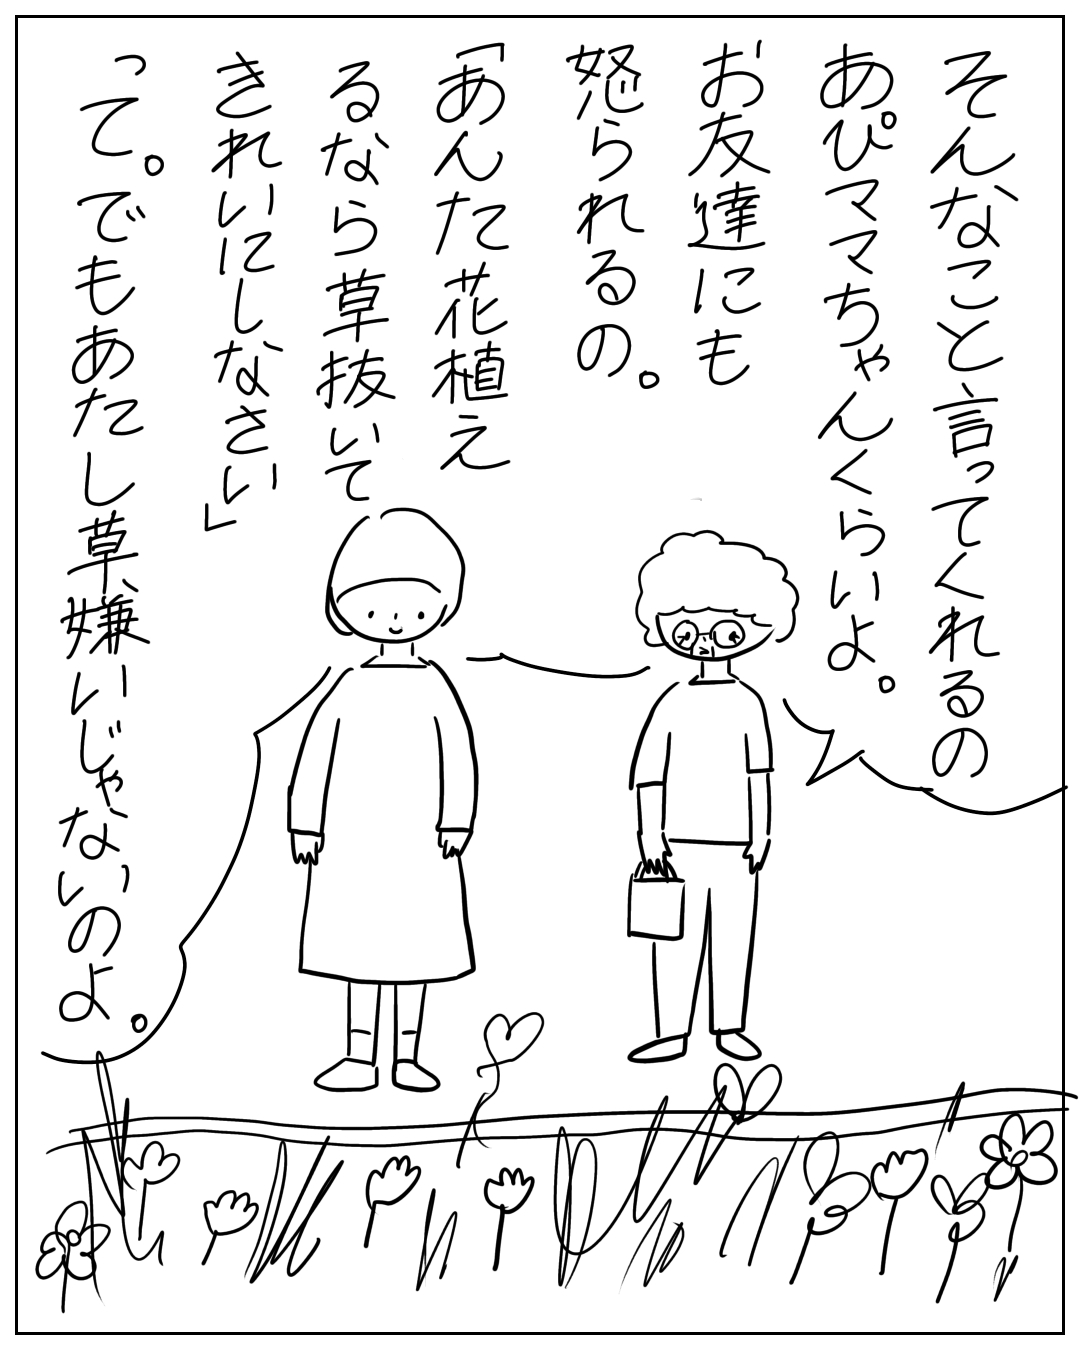 そんなこと言ってくれるの
あぴママちゃんくらいよ。
お友達にも
怒られるの。
「あんた花植え
るなら草抜いて
きれいにしなさい」
って。でもあたし草、嫌いじゃないのよ。